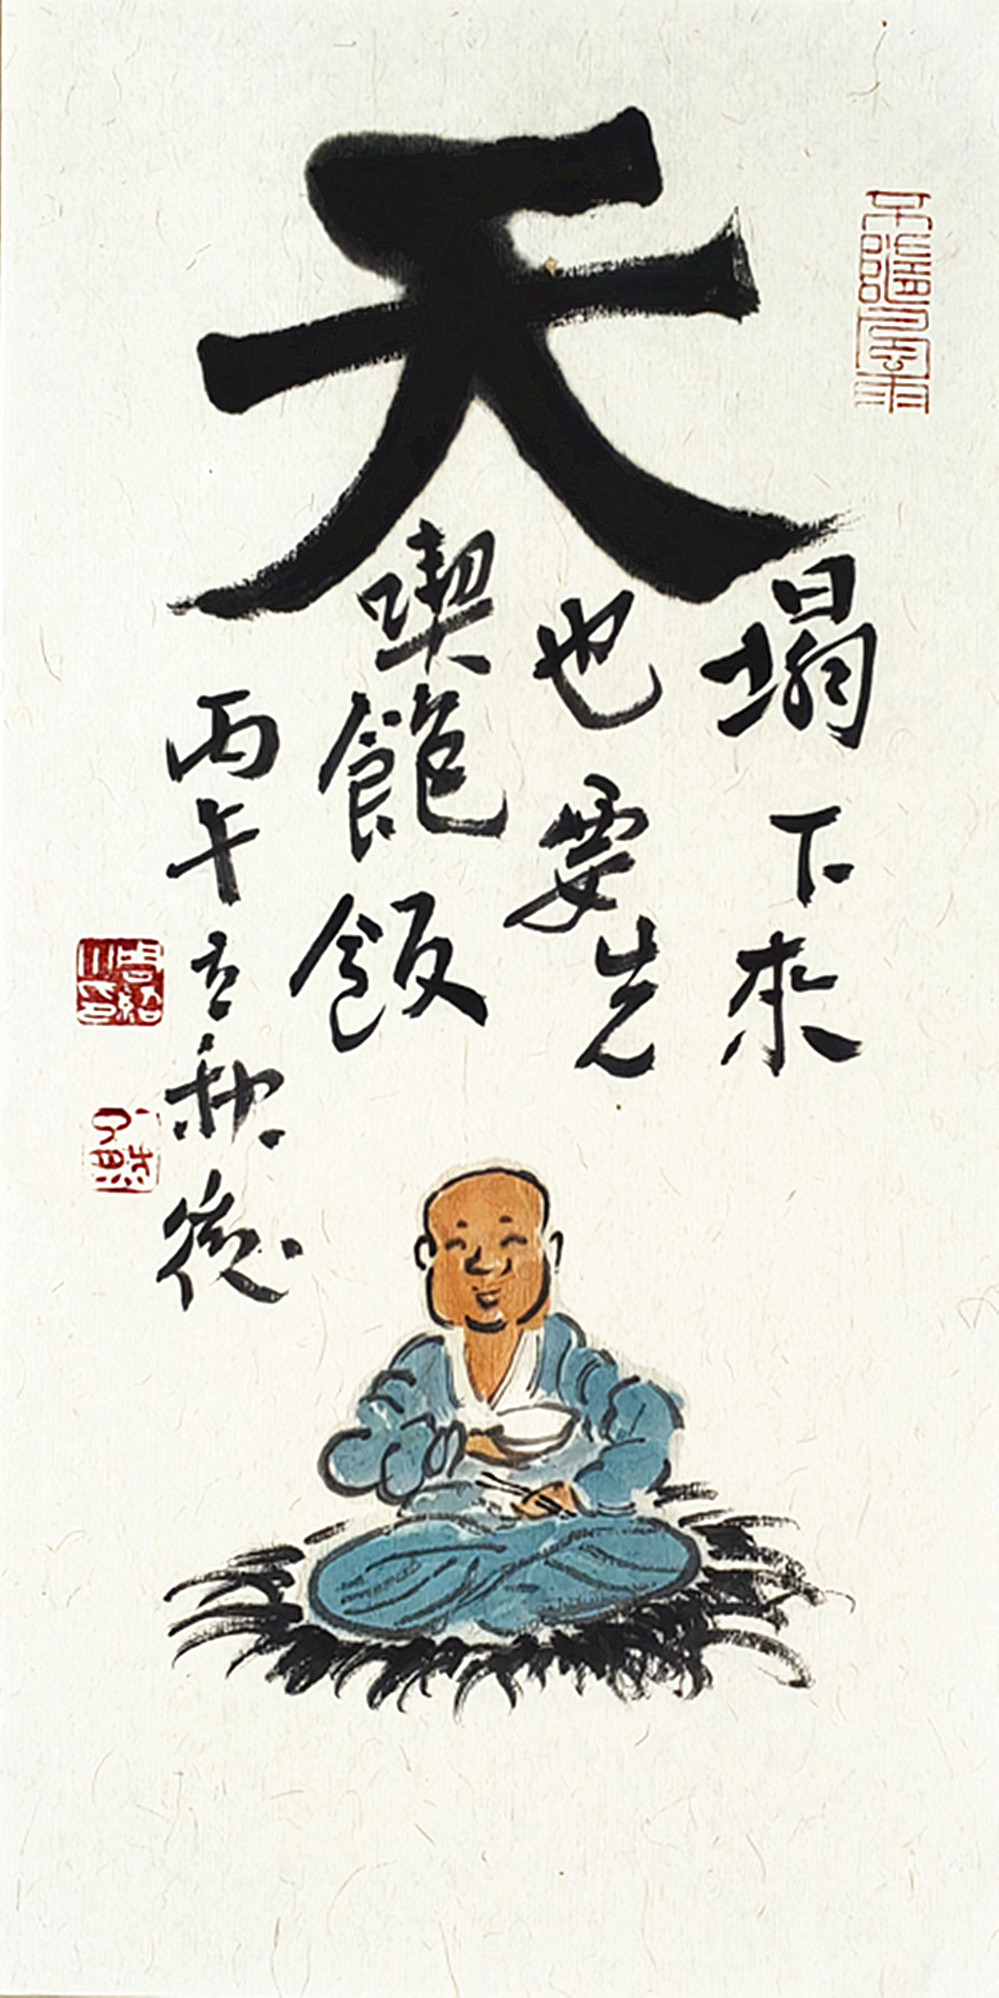 天
塌下來
也要先
喫飽飯
丙午立秋後